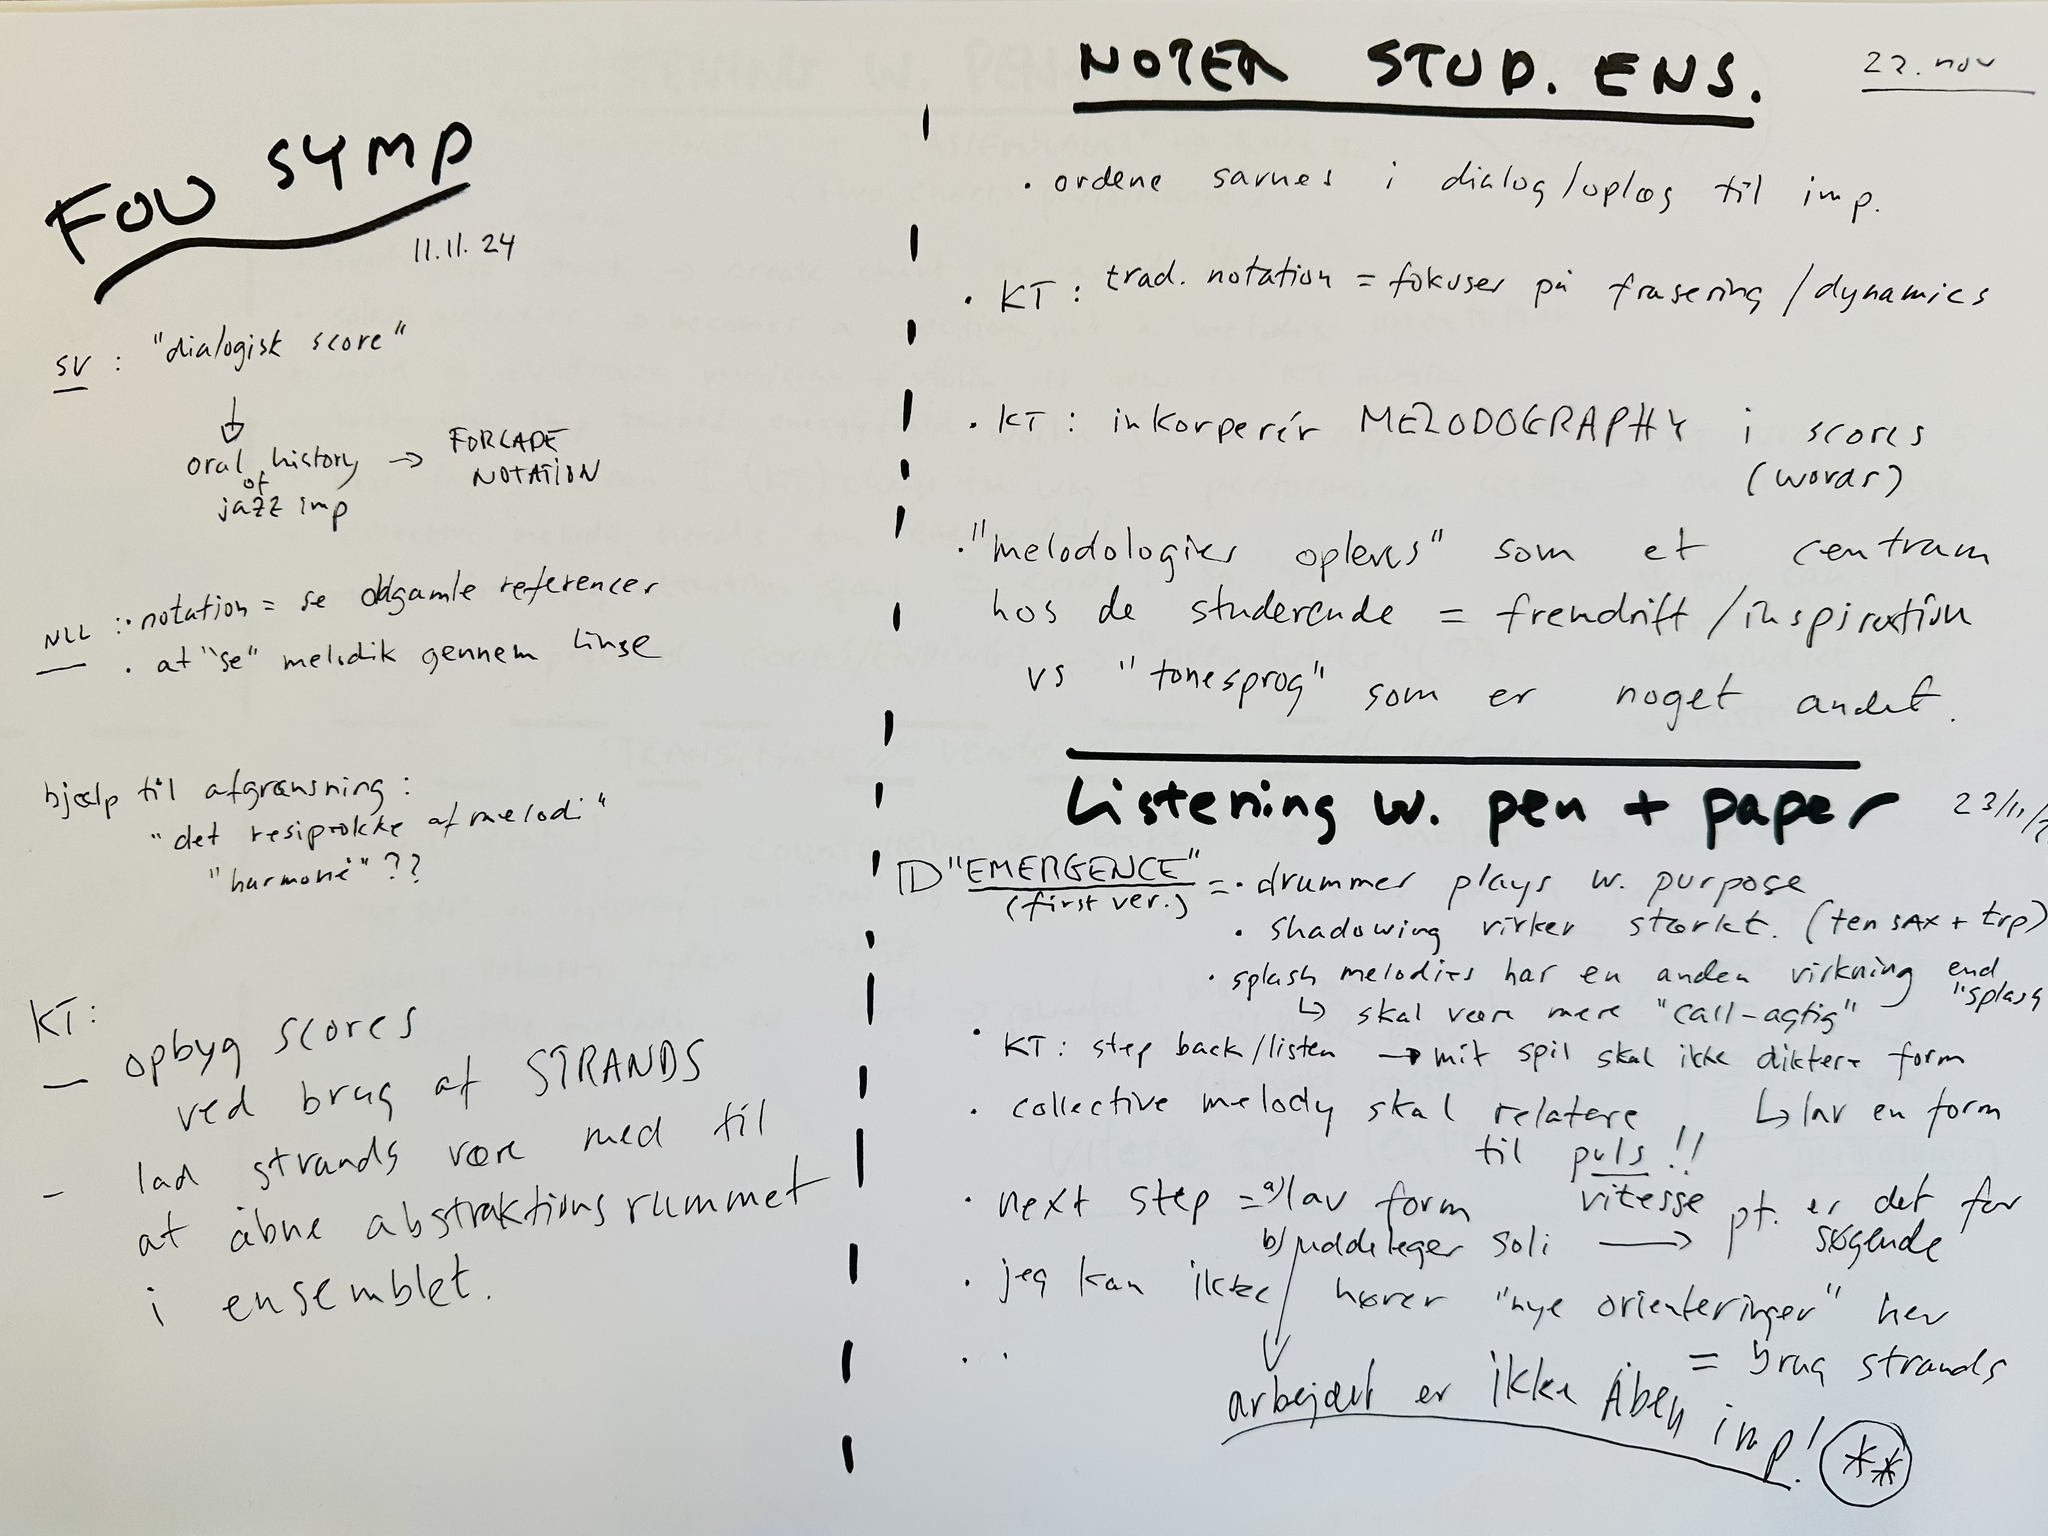 FOU SYMP
11.11.24
SV : "dialogisk score"
↓
oral history → FORCADE
of NOTATION
jazz imp
NLL : · notation = se oldgamle referencer
· at "se" melodik gennem linse
hjælp til afgrænsning :
"det resiprokke af melodi"
"harmoni" ??
KT:
— opbyg scores
ved brug af STRANDS
- lad strands være med til
at åbne abstraktionsrummet
i ensemblet.
NOTER STUD. ENS.
22. nov
· ordene savnes i dialog/oplæg til imp.
· KT : trad. notation = fokuser på frasering / dynamics
· KT : inkorperér MELODOGRAPHY i scores
(words)
· "melodologier opleves" som et centrum
hos de studerende = fremdrift / inspiration
vs "tonesprog" som er noget andet.
Listening w. pen + paper
23/11/2
"EMERGENCE" = · drummer plays w. purpose
(first ver.)
· shadowing virker stærkt. (ten sax + trp)
· splash melodies har en anden virkning end
"splash
↳ skal være mere "call-agtig"
· KT : step back/listen → mit spil skal ikke diktere form
↳ lav en form
· collective melody skal relatere
til puls !!
· next step = a) lav form vitesse pt. er det for
b) uddeleger soli → søgende
· jeg kan ikke hører "nye orienteringer" her
= brug strands
· ·
arbejdet er ikke Åben imp! **